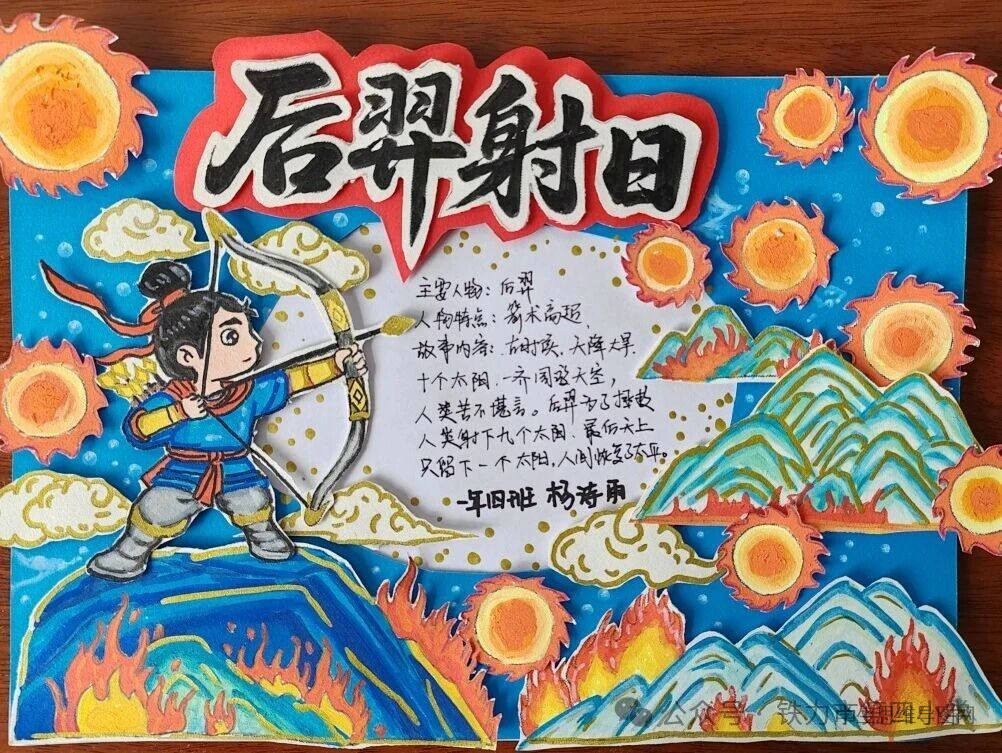 后羿射日
主要人物：后羿
人物特点：箭术高超
故事内容：古时候、天降大旱
十个太阳一齐同登天空，
人类苦不堪言。后羿为了拯救
人类射下九个太阳、最后天上
只留下一个太阳，人间恢复了太平。
一年四班 杨诗雨
公众号·铁力市